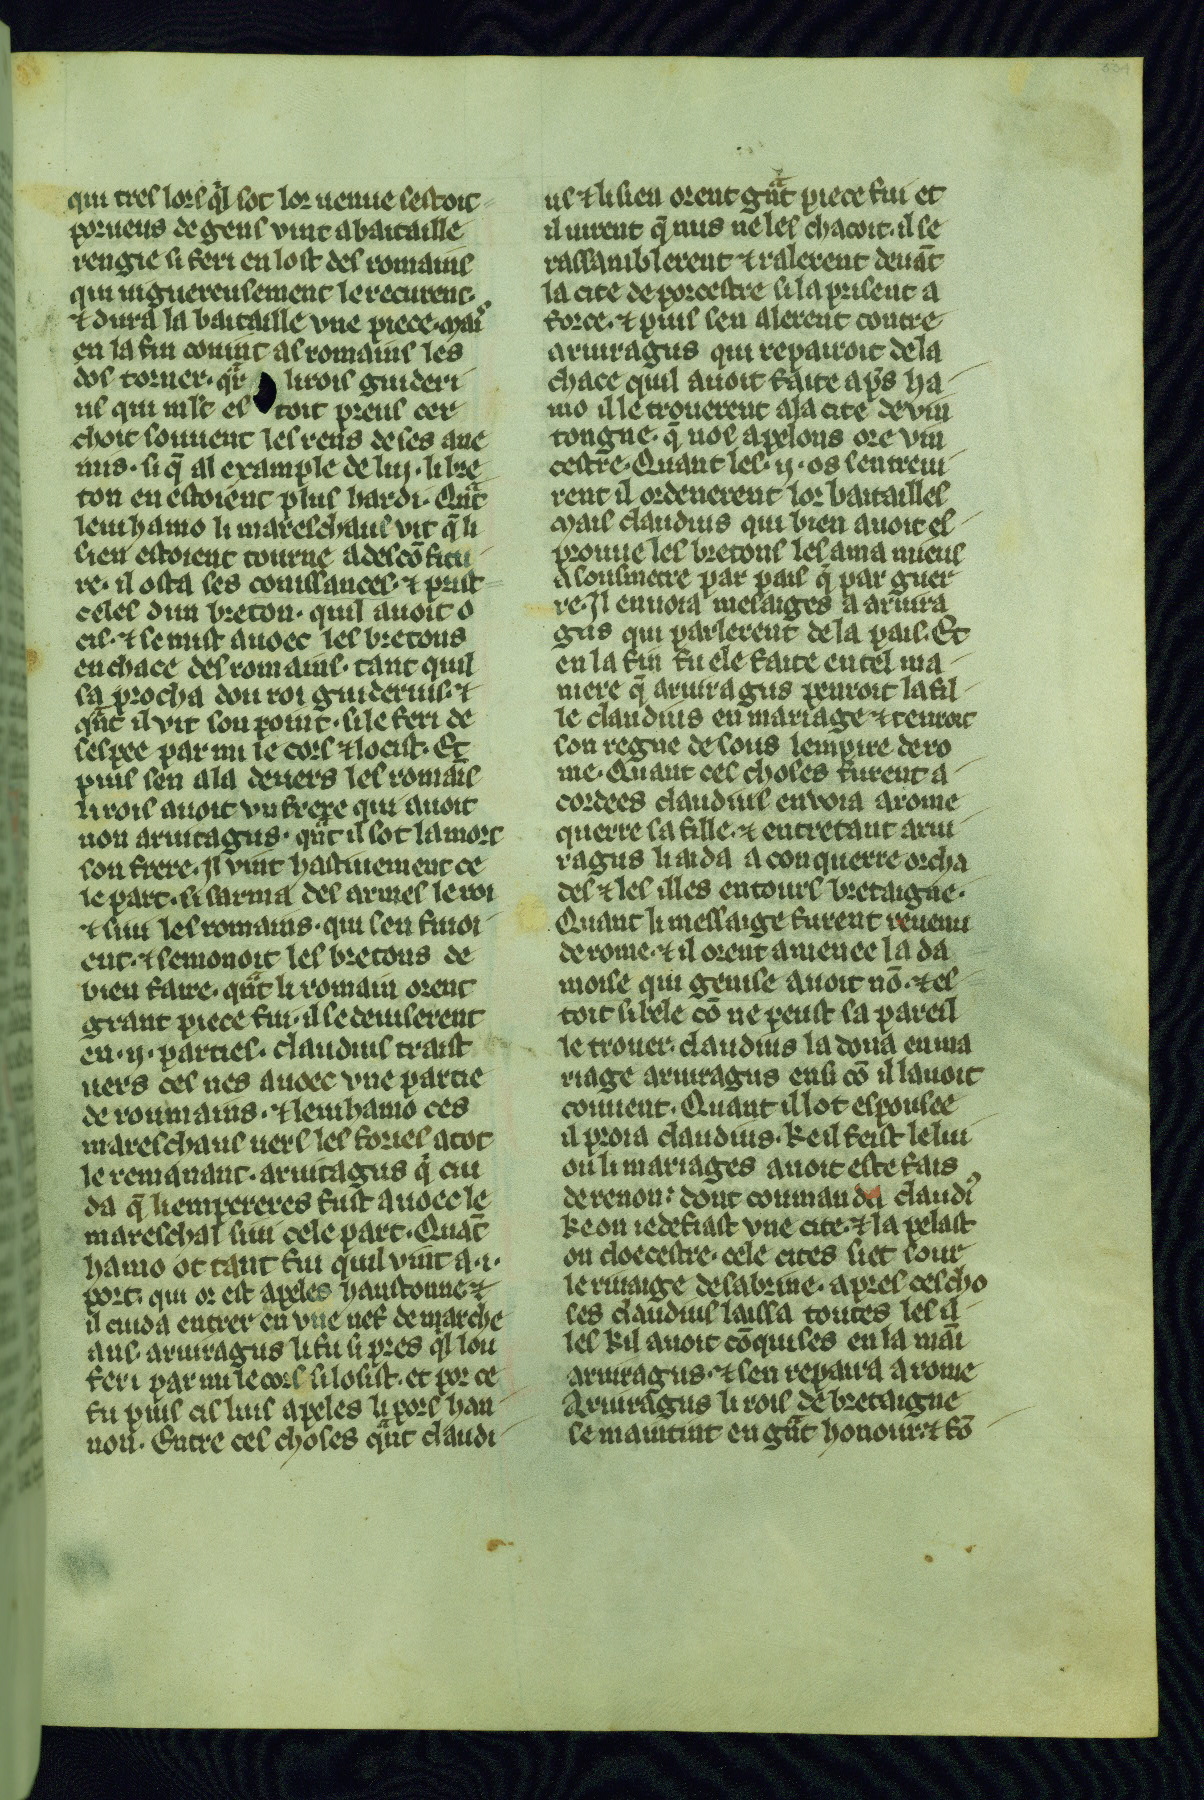 qui tres lors q̄l sot lor uenue sestoit
porueus de gens vint a bataille
rengie si feri en lost des romains
qui uiguereusement le recurent.
⁊ dura la bataille vne piece. Mai᷒
en la fin couint as romains les
dos torner. qͣr li rois guideri
us qui ml̄t estoit preus cer
choit souuent les rens de ses ane
mis. si q̄ al example de luj. li bre
ton en estoient plus hardi. Qn̄t
leuihamo li mareschaus vit q̄ li
sien estoient tourne a descōfitu
re. il osta ses conissances. ⁊ prist
celes dun breton. quil auoit o
cis. ⁊ se mist auoec les bretons
en chace des romains. tant quil
sa procha dou roi guiderius. ⁊
qn̄t il vit son point. si le feri de
sespee par mi le cors ⁊ locist. Et
puis sen ala deuers les romai̅s
li rois auoit vn frere qui auoit
non aruiragus. qn̄t il sot la mort
son frere. Il vint hastiuement ce
le part. si sarma des armes le roi
⁊ siui les romains. qui sen fuioi
ent. ⁊ semonoit les bretons de
bien faire. qn̄t li romain orent
grant piece fui. il se deuiserent
en .ij. parties. claudius traist
uers ces nes auoec vne partie
de roumains. ⁊ leuihamo ces
mareschaus uers les fories atot
le remanant. aruiragus q̄ cui
da q̄ li empereres fust auoec le
mareschal siui cele part. Quāt
hamo ot tant fui quil vint a .i.
port. qui or est apeles hanstonne ⁊
il cuida entrer en vne nef de marche
ans. aruiragus li fu si pres q̄l lou
feri par mi le cors si losist. et por ce
fu puis cis luis apeles li pors han
non. Entre ces choses qn̄t claudi
us ⁊ li sien orent gn̄t piece fui et
il uirent q̄ nus ne les chacoit. il se
rassamblerent ⁊ ralerent deuāt
la cite de porcestre si la prisent a
force. ⁊ puis sen alerent contre
aruiragus qui repairoit de la
chace quil auoit faite ap̄s ha
mo il le trouerent a la cite de vin
tongne. q̄ nos apelons ore vin
cestre. Quant les .ij. os sentreui
rent il ordenerent lor batailles
Mais claudius qui bien auoit es
prouue les bretons les ama mieus
a sousmetre par pais q̄ par guer
re. Il enuoia mesaiges a aruira
gus qui parlerent de la pais. Et
en la fin fu ele faite en tel ma
niere q̄ aruiragus penroit la fil
le claudius en mariage ⁊ tenroit
son regne de sous lempire de ro
me. Quant ces choses furent a
cordees claudius envoia a rome
querre sa fille. ⁊ entretant arui
ragus li aida a conquerre orcha
des ⁊ les illes entours bretaigne.
Quant li messaige furent reuenu
de rome. ⁊ il orent amenee la da
moise qui genise auoit nō. ⁊ es
toit si bele cō ne peust sa pareil
le trouer. claudius la dona en ma
riage aruiragus ensi cō il lauoit
couuent. Quant il lot espousee
il proia claudius. ke il feist le liu
ou li mariages auoit este fais
de renon: dont coumanda claudi᷒
ke on i edefiast vne cite. ⁊ la pelast
on cloecestre. cele cites siet sour
le riuaige de sabrine. apres ces cho
ses claudius laissa toutes les il
les kil auoit cōquises en la mai̅
aruiragus. ⁊ sen repaira a rome
Aruiragus li rois de bretaigne
se maintint en gn̄t honour. ⁊ fō